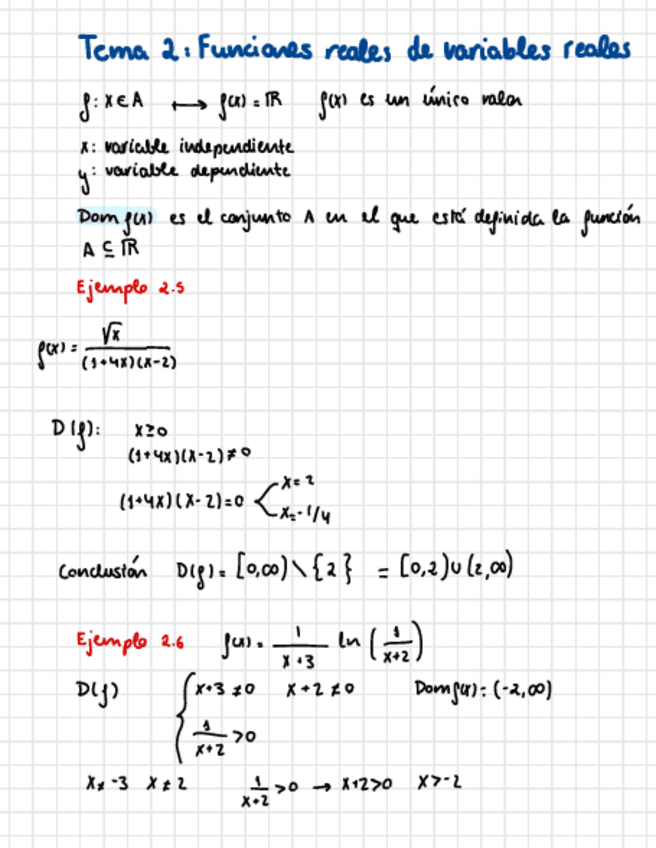 Tema 2: Funciones reales de variables reales
f: x ∈ A ⟼ f(x) = ℝ f(x) es un único valor
x: variable independiente
y: variable dependiente
Dom f(x) es el conjunto A en el que está definida la función
A ⊆ ℝ
Ejemplo 2.5
f(x) = √x / (1+4x)(x-2)
D(f): x≥0
(1+4x)(x-2)≠0
(1+4x)(x-2)=0 x=2
x=-1/4
Conclusión D(f)= [0,∞)∖{2} = [0,2)∪(2,∞)
Ejemplo 2.6 f(x)= 1/(x+3) ln (1/(x+2))
D(f) { x+3≠0 x+2≠0 Dom f(x): (-2,∞)
1/(x+2) >0
x≠-3 x≠2 1/(x+2) >0 → x+2>0 x>-2